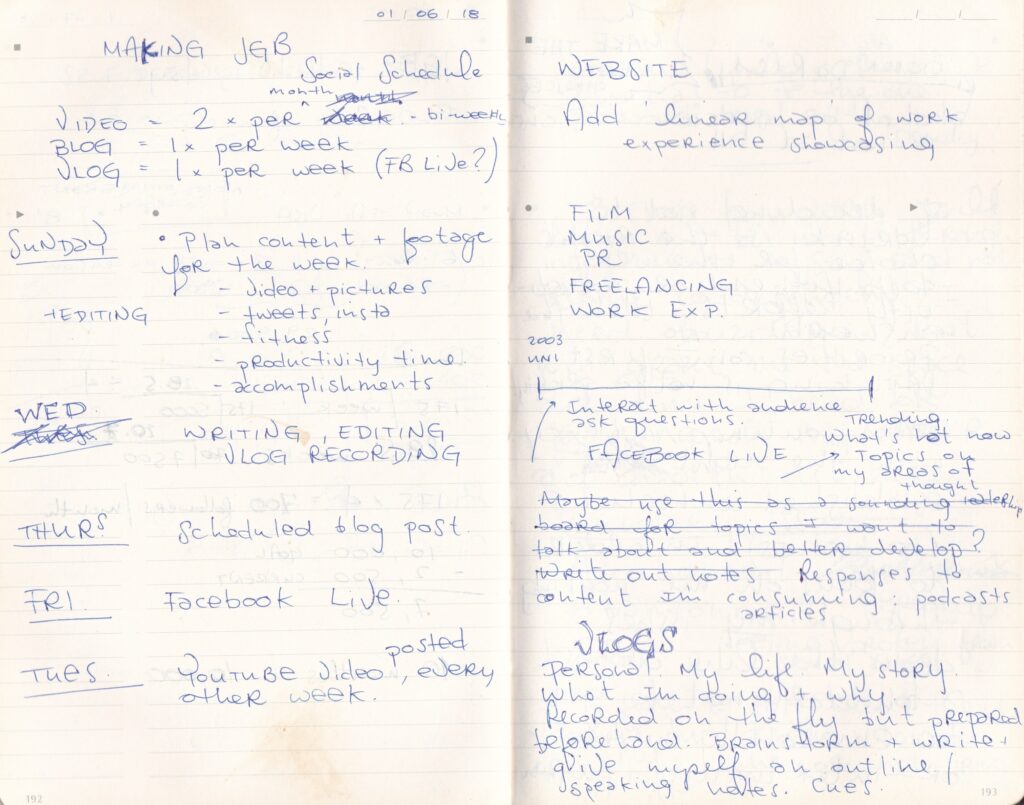 01 / 06 / 18
MAKING JGB
Social Schedule
month
VIDEO = 2 x per week - bi-weekly
BLOG = 1x per week
VLOG = 1x per week (FB Live?)
SUNDAY
• Plan content + footage
for the week.
- video + pictures
+EDITING - tweets, insta
- fitness
- productivity time
- accomplishments
WED
WRITING, EDITING
VLOG RECORDING
THURS Scheduled blog post.
FRI. Facebook Live.
posted
TUES. YouTube video, every
other week.
192
WEBSITE
Add 'linear map' of work
experience showcasing
FILM
MUSIC
PR
FREELANCING
WORK EXP.
2003
UNI
Interact with audience
ask questions
Trending.
What's hot now
FACEBOOK LIVE
Topics on
my areas of
thought
leadership
Maybe use this as a sounding
board for topics I want to
talk about and better develop?
Write out notes. Responses to
content I'm consuming: podcasts
articles
VLOGS
Personal. My life. My story.
What I'm doing + why.
Recorded on the fly but prepared
beforehand. Brainstorm + write +
give myself an outline /
speaking notes. Cues.
193